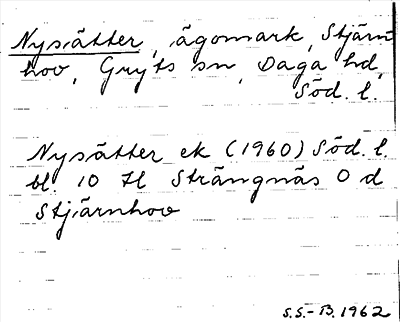 Nysätter, ägomark, Stjärn-
hov, Gryts sn, Daga hd,
Söd. l.
Nysätter ek (1960) Söd. l.
bl. 10 H Strängnäs O d
Stjärnhov
S.S.-B. 1962